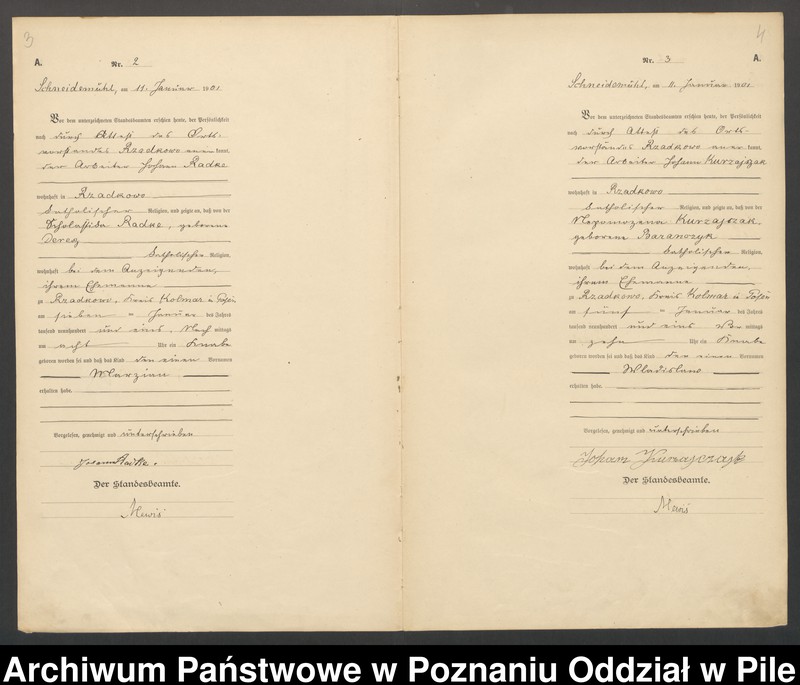 3
A.
Nr. 2
Schneidemühl, am 11. Januar 1901.
Vor dem unterzeichneten Standesbeamten erschien heute, der Persönlichkeit
nach durch Attest des Orts-
vorstandes Rzadkowo aner kannt,
der Arbeiter Johann Radke
wohnhaft in Rzadkowo
katholischer Religion, und zeigte an, daß von der
Scholastika Radke, geborene
katholischer Religion,
wohnhaft bei dem Anzeigenden,
ihrem Ehemanne
zu Rzadkowo, Kreis Kolmar i Posen
am sieben = Januar des Jahres
tausend neunhundert und eins, Nach mittags
um acht Uhr ein Knabe
geboren worden sei und daß das Kind den einen Vornamen
erhalten habe.
Vorgelesen, genehmigt und unterschrieben
Johann Radke.
Der Standesbeamte.
Mewis
4
Nr. 3
A.
Schneidemühl, am 11. Januar 1901.
Vor dem unterzeichneten Standesbeamten erschien heute, der Persönlichkeit
nach durch Attest des Orts-
vorstandes Rzadkowo aner kannt,
der Arbeiter Johann Kurzajczak
wohnhaft in Rzadkowo
katholischer Religion, und zeigte an, daß von der
Nepomozena Kurzajczak,
geborene Baranczyk
katholischer Religion,
wohnhaft bei dem Anzeigenden,
ihrem Ehemanne
zu Rzadkowo, Kreis Kolmar i Posen
am fünf = Januar des Jahres
tausend neunhundert und eins Vor mittags
um zehn Uhr ein Knabe
geboren worden sei und daß das Kind den einen Vornamen
Wladislaw
erhalten habe.
Vorgelesen, genehmigt und unterschrieben
Johann Kurzajczak
Der Standesbeamte.
Mewis
Archiwum Państwowe w Poznaniu Oddział w Pile